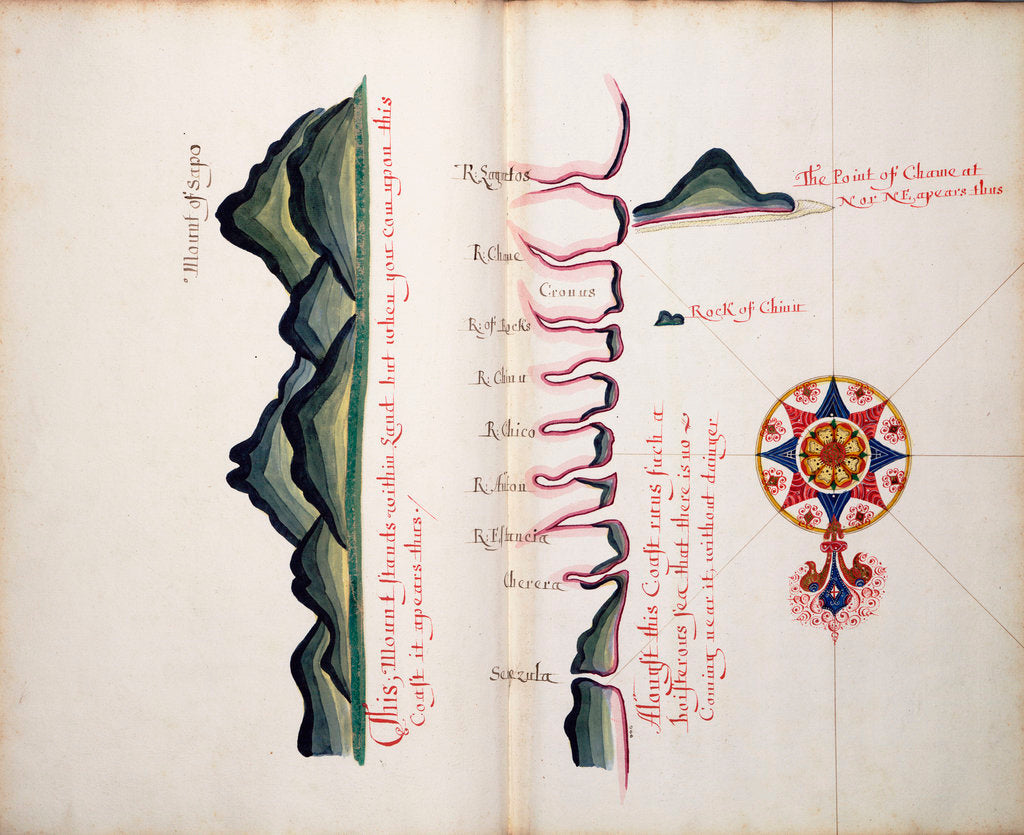 Mount of Sapo
This, Mount stands within Land but when you com upon this
Coast it apears thus./
R: Chame
Cronus
R: of Rocks
R: Chiru
R: Chico
R: Anton
R: Estancia
Cherera
The Point of Chame at
N or NE, apears thus
Rock of Chiru
Alongst this Coast runs such a
boisterous sea that there is no
Coming near it, without danger